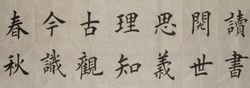 讀書
閱世
思義
理知
古觀
今識
春秋